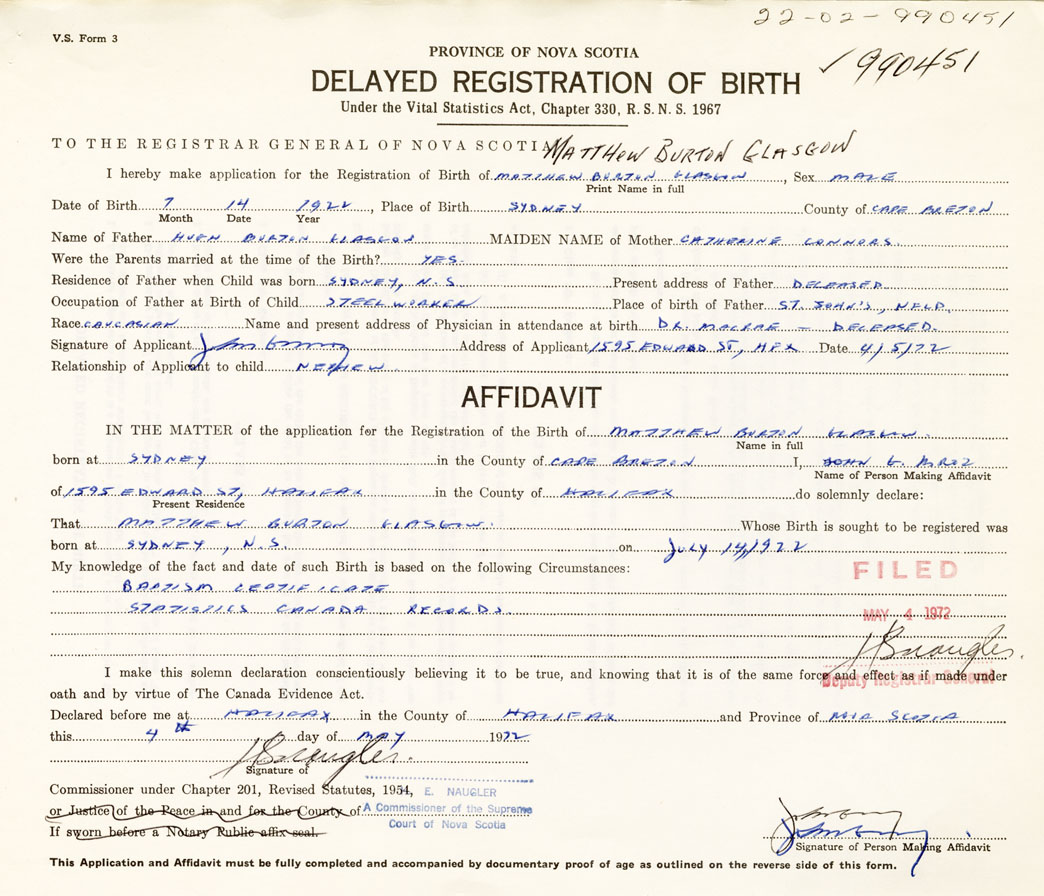 22-02-990451
V.S. Form 3
PROVINCE OF NOVA SCOTIA
✓990451
DELAYED REGISTRATION OF BIRTH
Under the Vital Statistics Act, Chapter 330, R.S.N.S. 1967
TO THE REGISTRAR GENERAL OF NOVA SCOTIA MATTHEW BURTON GLASGOW
I hereby make application for the Registration of Birth of MATTHEW BURTON GLASGOW, Sex MALE
Print Name in full
Date of Birth 7 14 1922, Place of Birth SYDNEY County of CAPE BRETON
Month Date Year
Name of Father HUGH BURTON GLASGOW MAIDEN NAME of Mother CATHERINE CONNORS.
Were the Parents married at the time of the Birth? YES.
Residence of Father when Child was born SYDNEY, N.S. Present address of Father DECEASED
Occupation of Father at Birth of Child STEEL WORKER Place of birth of Father ST. JOHN'S, NFLD.
Race CAUCASIAN Name and present address of Physician in attendance at birth DR. MACRAE – DECEASED.
Signature of Applicant Address of Applicant 1595 EDWARD ST, HFX Date 4/5/72
Relationship of Applicant to child NEPHEW
AFFIDAVIT
IN THE MATTER of the application for the Registration of the Birth of MATTHEW BURTON GLASGOW.
Name in full
born at SYDNEY in the County of CAPE BRETON I, JOHN
Name of Person Making Affidavit
of 1595 EDWARD ST, HALIFAX in the County of HALIFAX do solemnly declare:
Present Residence
That MATTHEW BURTON GLASGOW. Whose Birth is sought to be registered was
born at SYDNEY, N.S. on JULY 14, 1922
My knowledge of the fact and date of such Birth is based on the following Circumstances:
BAPTISM CERTIFICATE
FILED
STATISTICS CANADA RECORDS.
MAY 4 1972
E Naugler.
I make this solemn declaration conscientiously believing it to be true, and knowing that it is of the same force and effect as if made under
Deputy Registrar General
oath and by virtue of The Canada Evidence Act.
Declared before me at HALIFAX in the County of HALIFAX and Province of NOVA SCOTIA
this 4th day of MAY 1972
E Naugler.
Signature of
Commissioner under Chapter 201, Revised Statutes, 1954, E. NAUGLER
or Justice of the Peace in and for the County of A Commissioner of the Supreme
Court of Nova Scotia
If sworn before a Notary Public affix seal.
Signature of Person Making Affidavit
This Application and Affidavit must be fully completed and accompanied by documentary proof of age as outlined on the reverse side of this form.